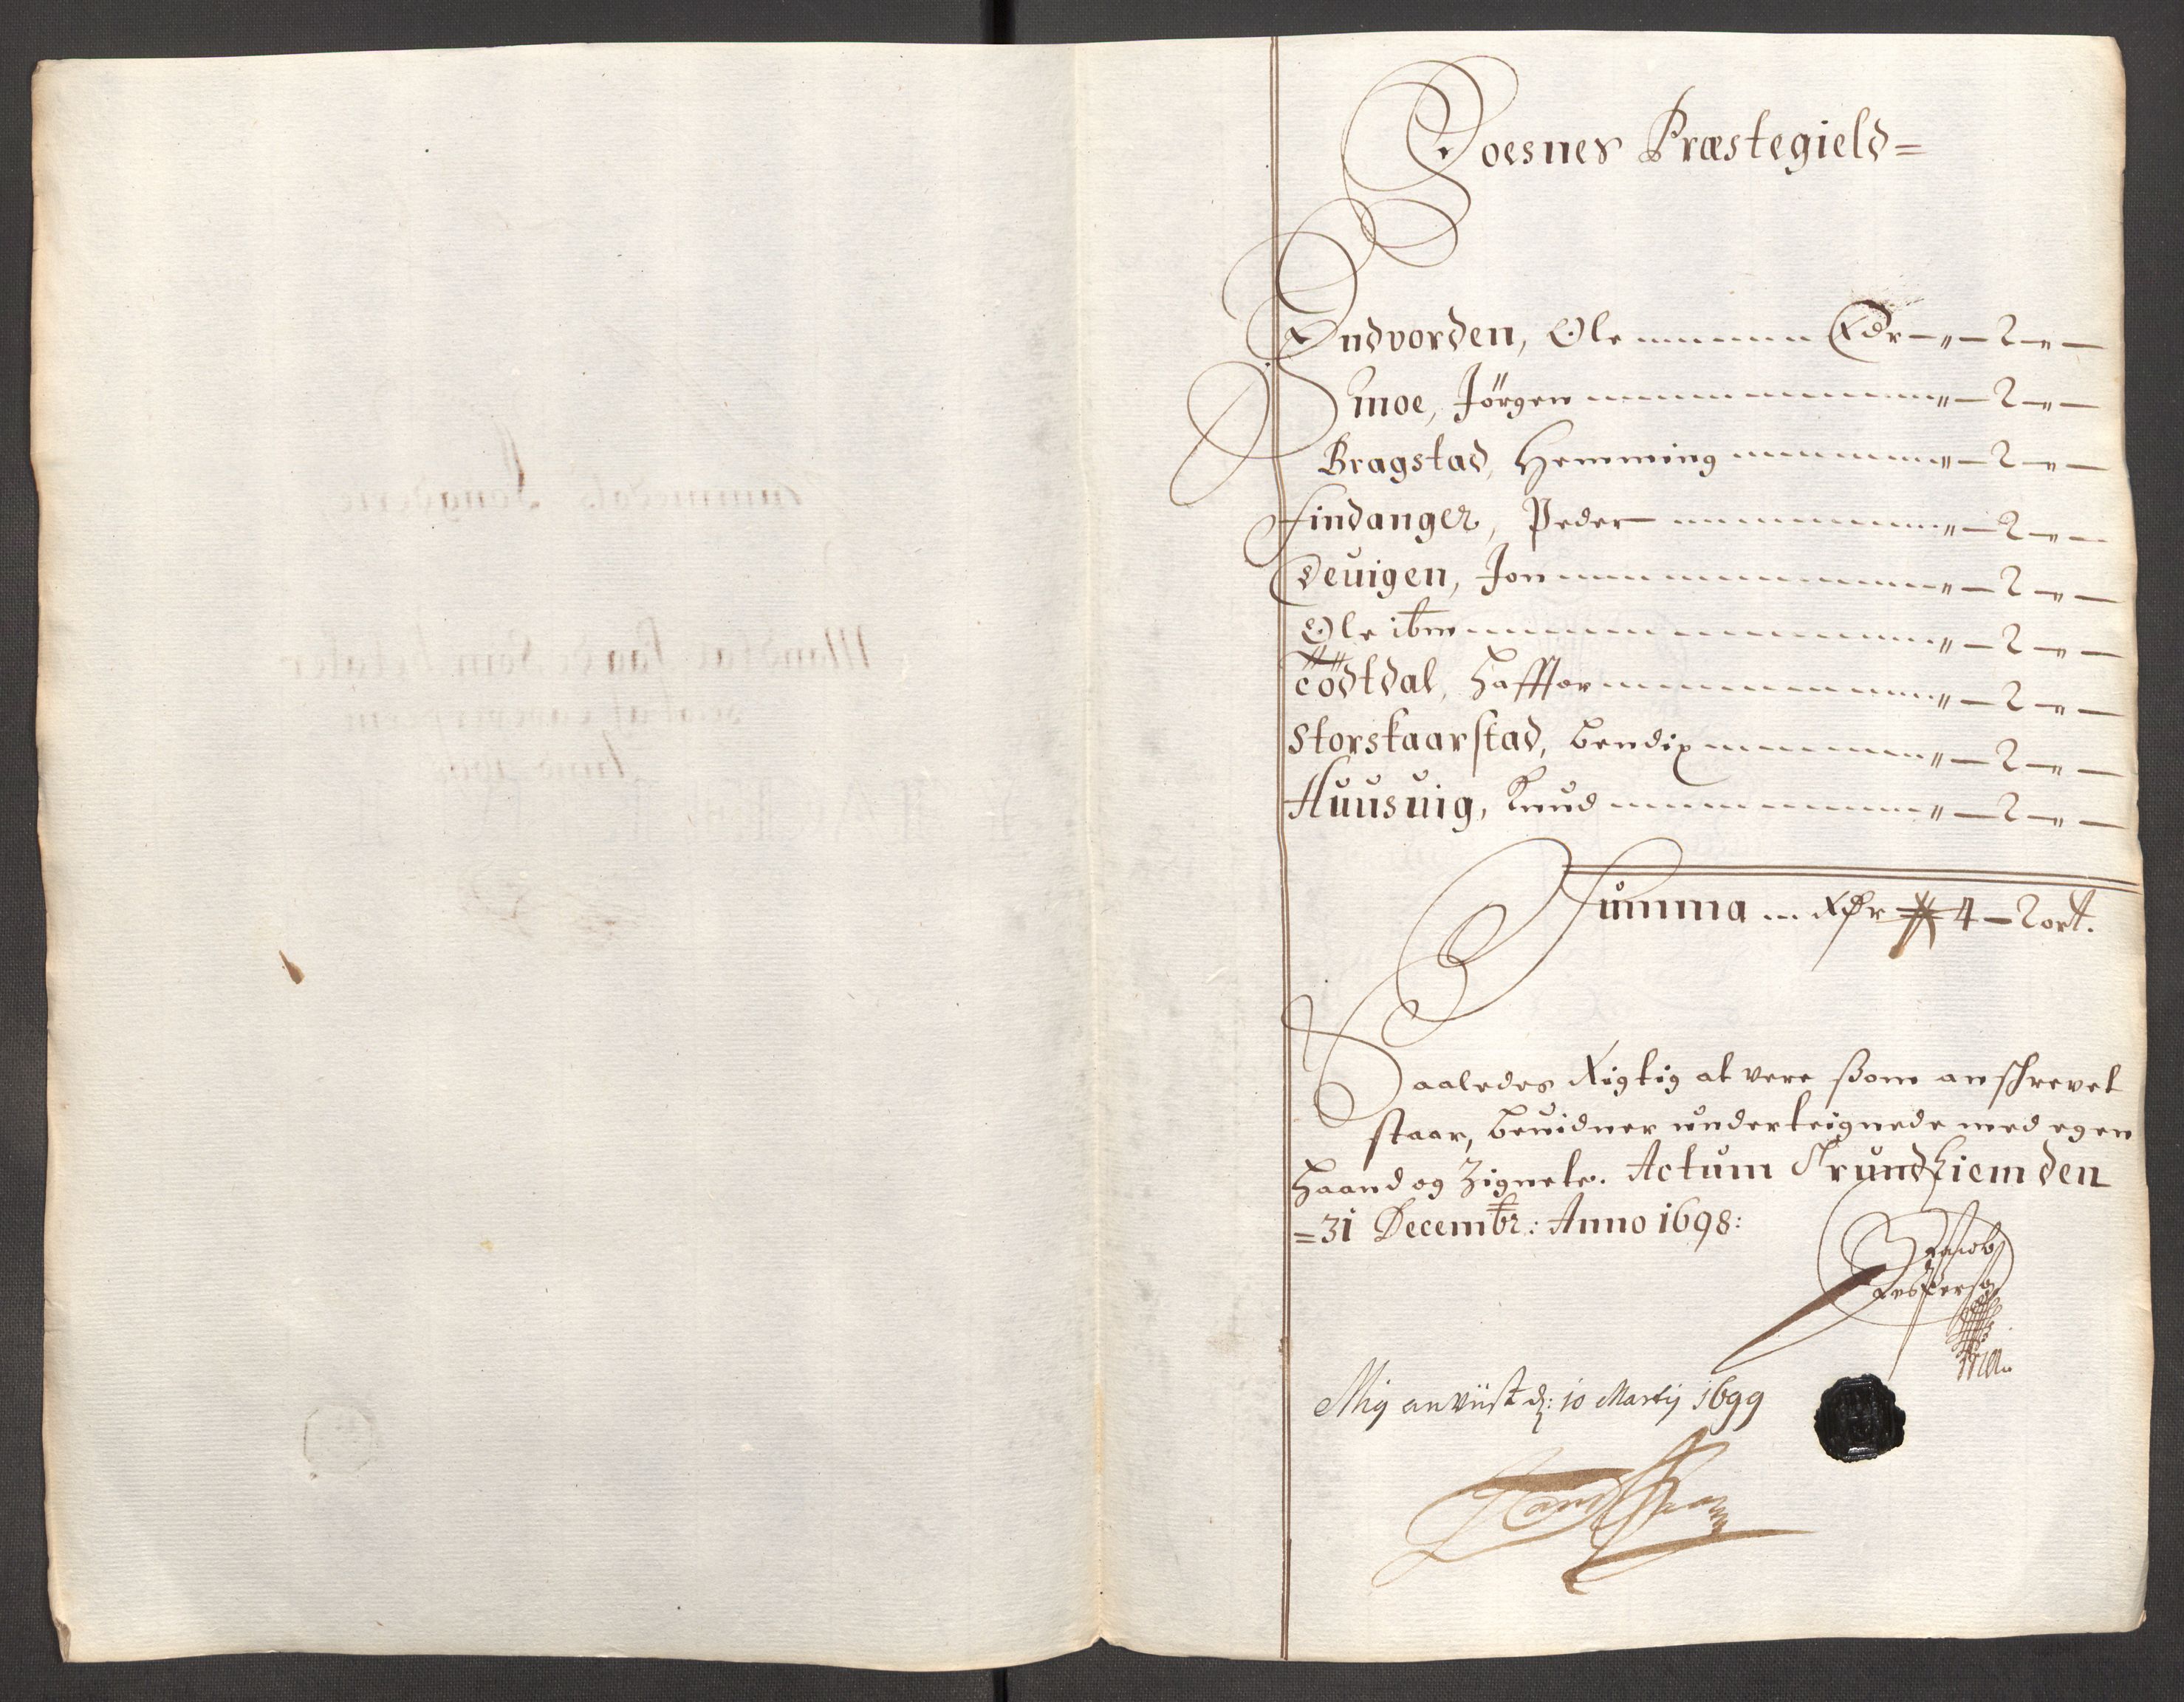 Foesnes Præstegield=
Indvorden, Ole Rdr – „ – 2 – „ –
Smoe, Jörgen „ – 2 – „ –
Bragstad, Hemming „ – 2 – „ –
Findanger, Peder „ – 2 – „ –
Deuigen, Jon „ – 2 – „ –
Ole ibm „ – 2 – „ –
Södtdal, Haffſor „ – 2 – „ –
Storskaarstad, Bendix „ – 2 – „ –
Huusuig, Knud „ – 2 – „ –
Summa Rdr 4 – 2 ort.
Saaledes Rigtig at vere ßom anschrevet
staar, beuidner underteignede med egen
Haand og Zignete. Actum Trundhiem den
=31 Decembr: Anno 1698:
Jacob
Jespersøn
Mig anviist d: 10 Martij 1699